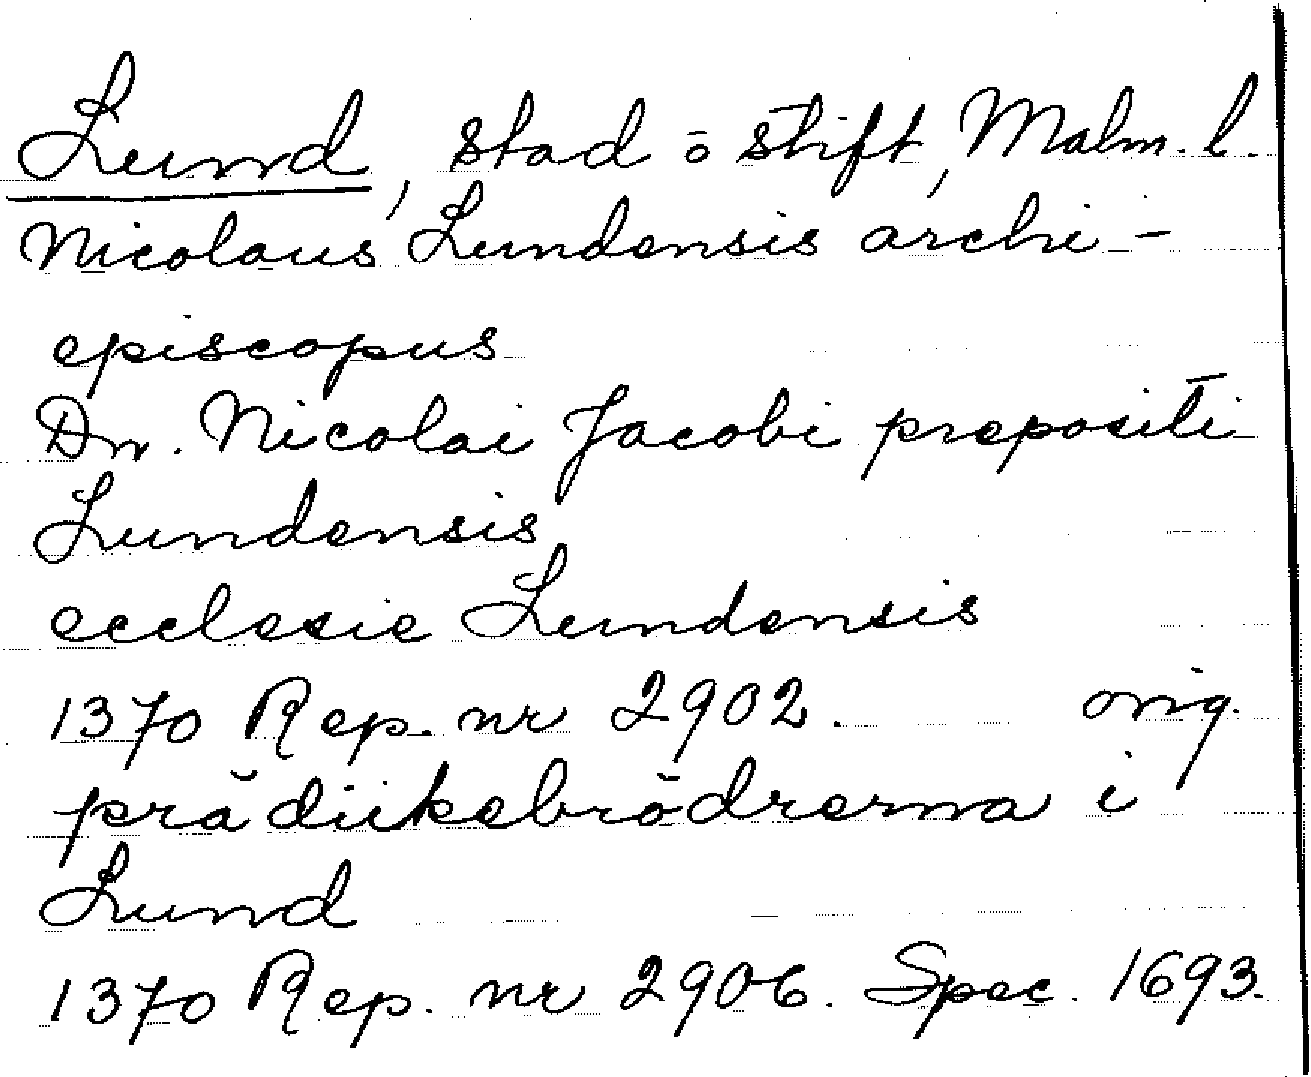 Lund, stad o stift, Malm. l.
Nicolaus Lundensis archi-
episcopus
Dn. Nicolai Jacobi prepositi
Lundensis
ecclesie Lundensis
1370 Rep. nr 2902. orig.
prädiikebrödrerna i
Lund
1370 Rep. nr 2906. Spec. 1693.